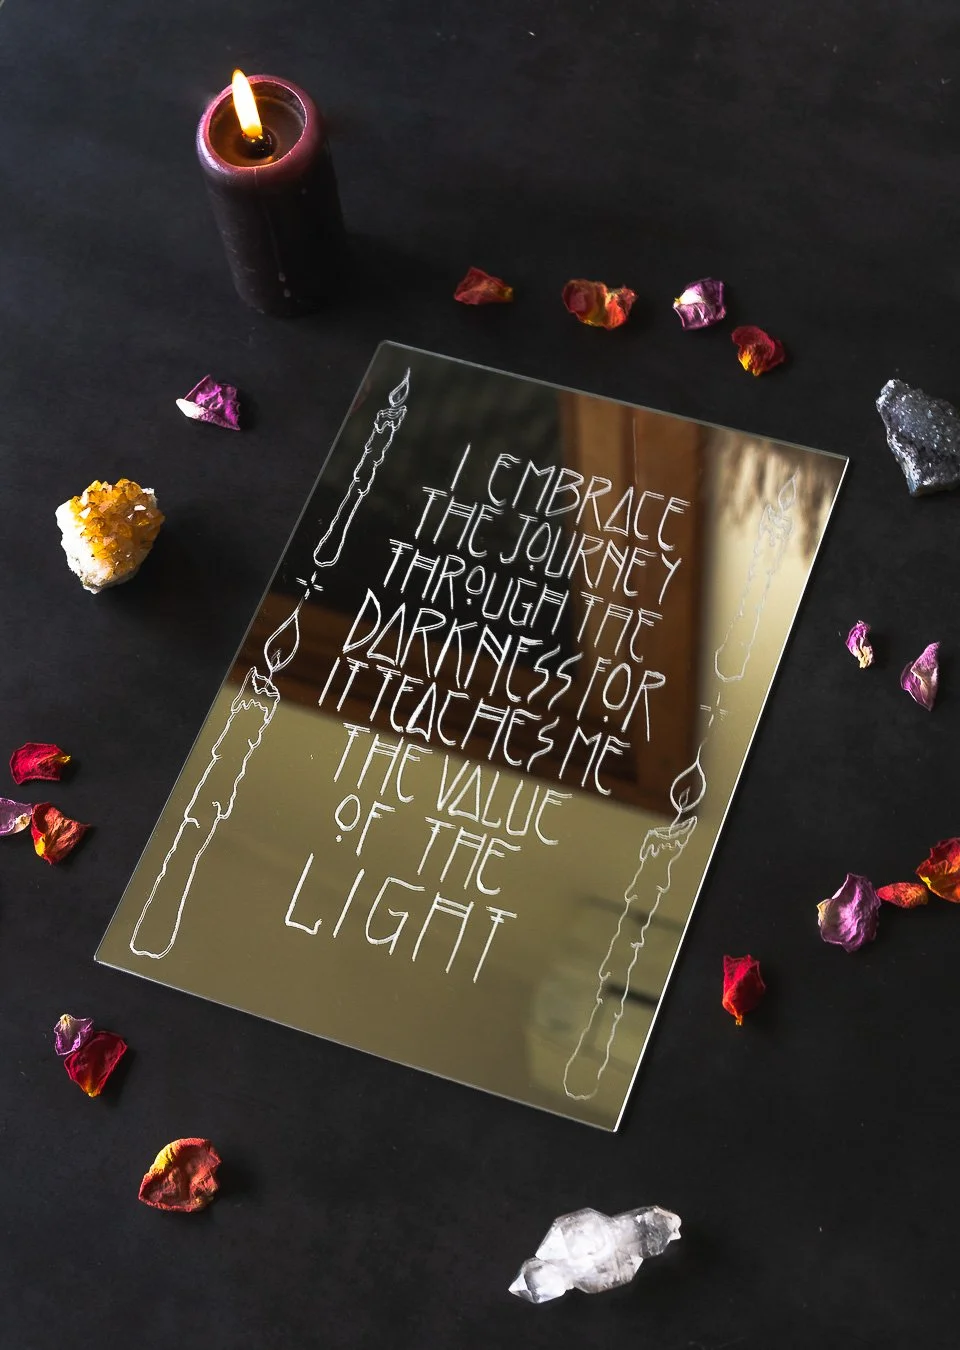 I EMBRACE
THE JOURNEY
THROUGH THE
DARKNESS FOR
IT TEACHES ME
THE VALUE
OF THE
LIGHT